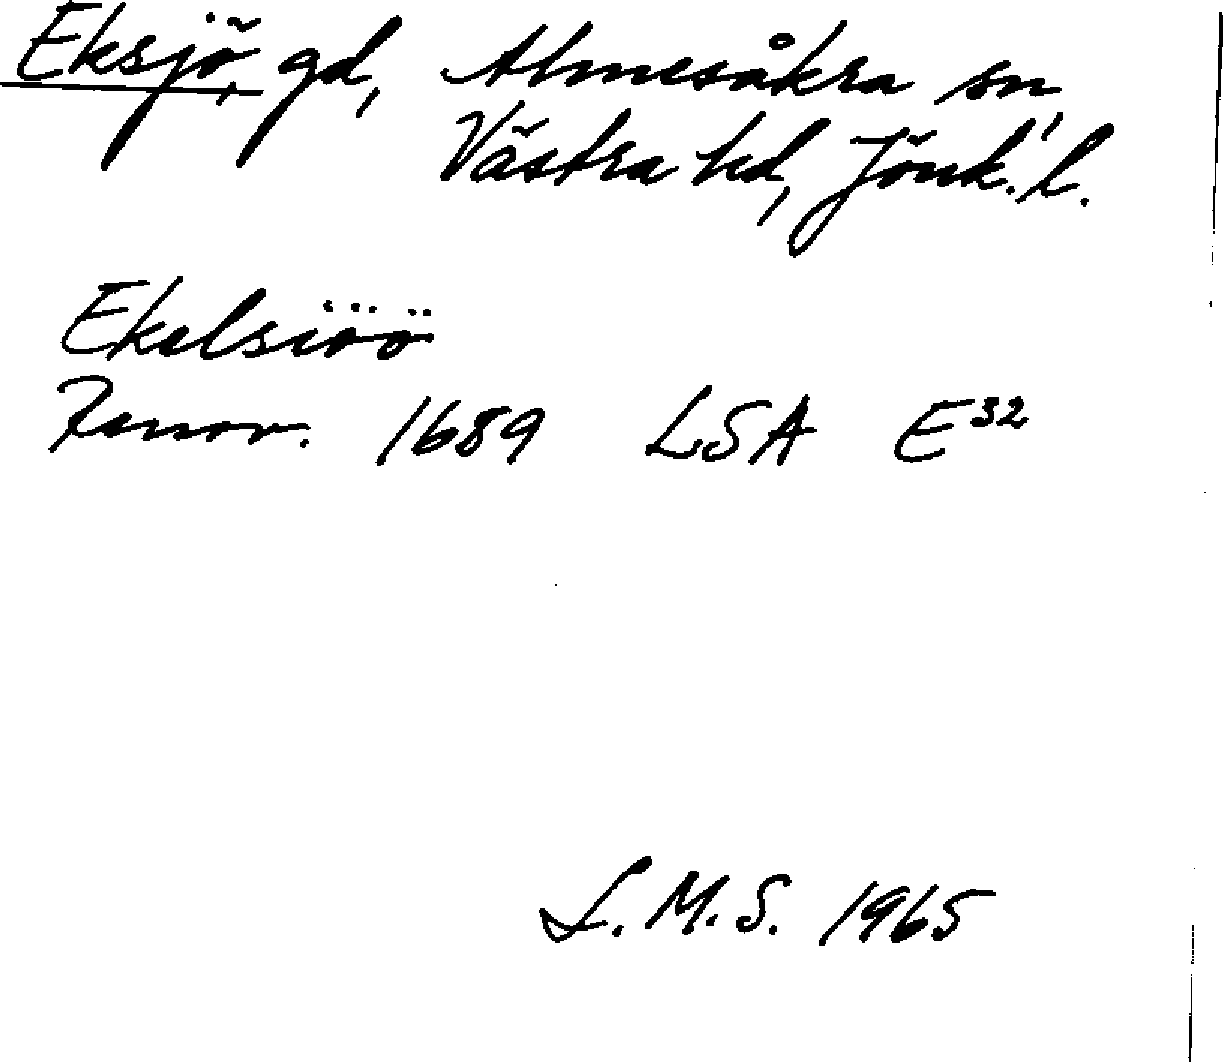 Eksjö, gd, Almesåkra sn,
Västra hd, Jönk. l.
Ekelsiöö
Renov. 1689 LSA E³²
L.M.S. 1965